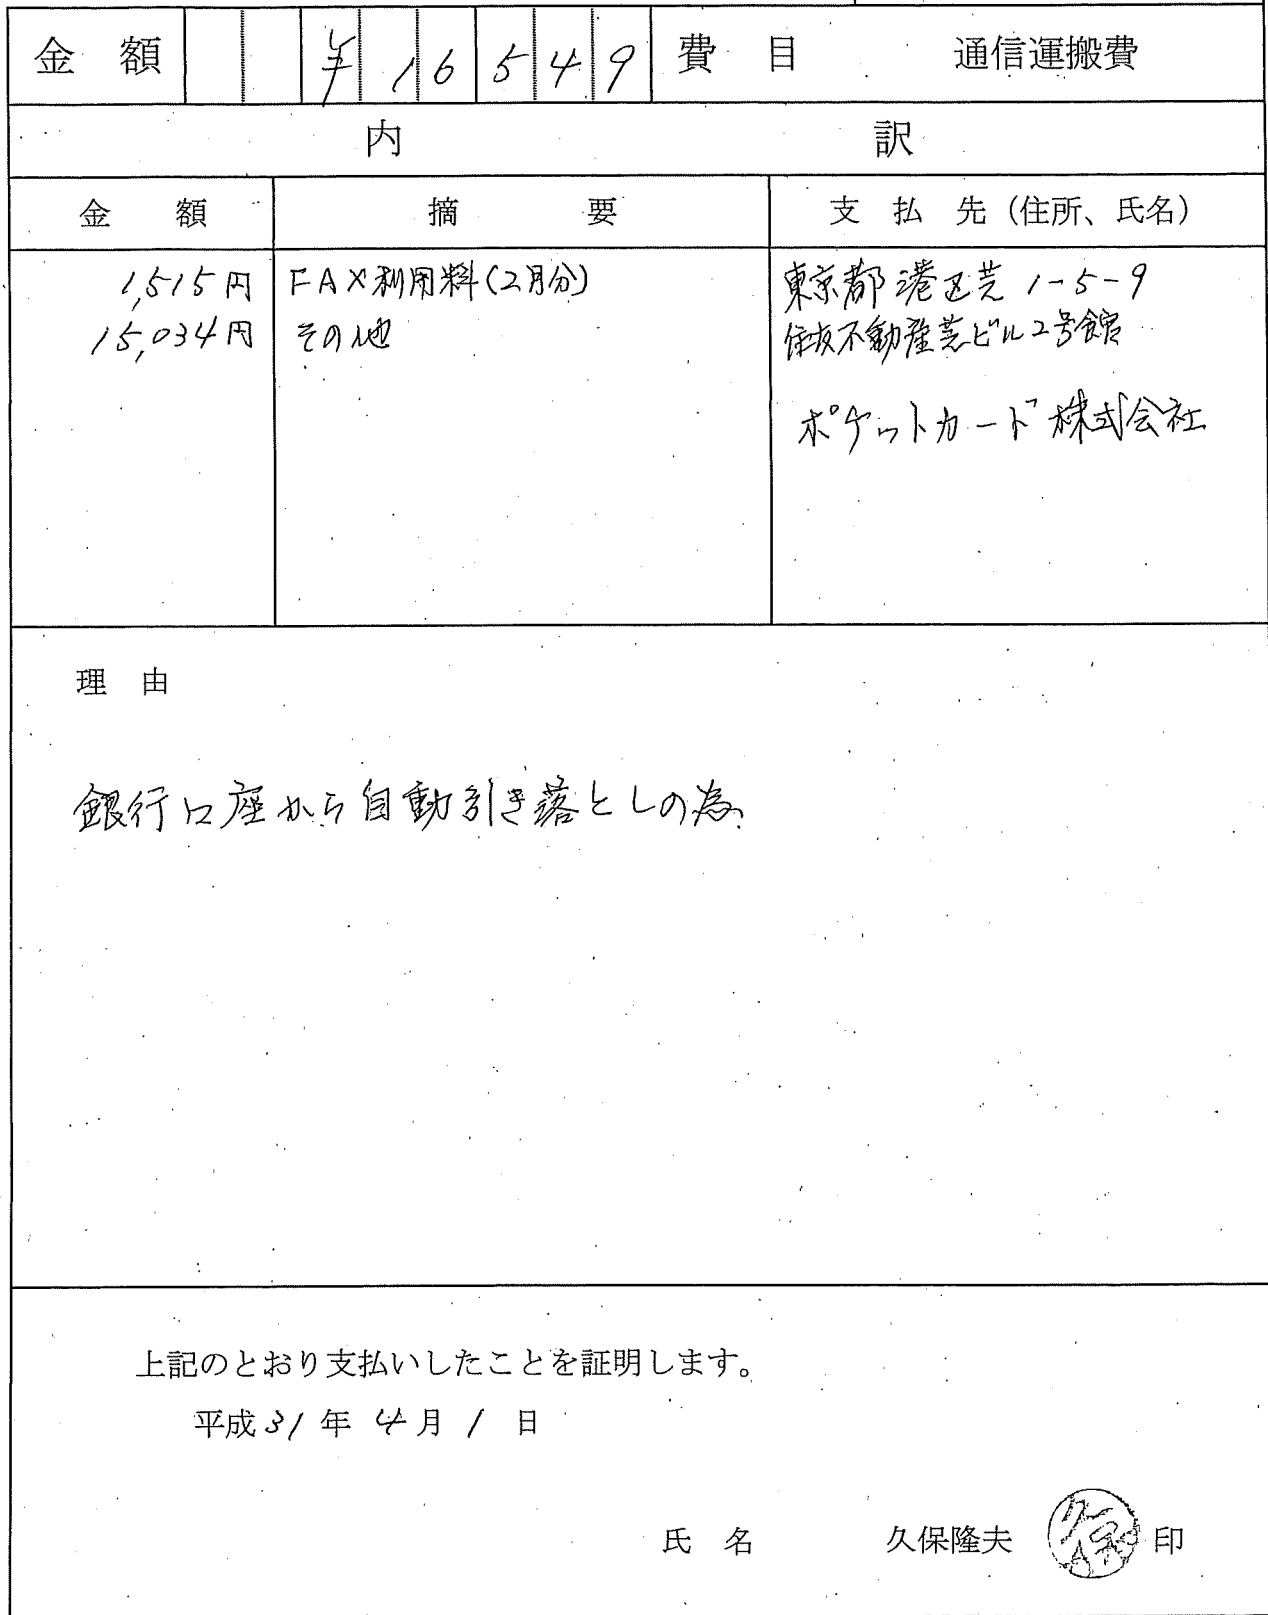 金額 ¥16549 費目 通信運搬費
内訳
金額 摘要 支払先（住所、氏名）
1,515円 FAX利用料(2月分) 東京都港区芝1-5-9
15,034円 その他 住友不動産芝ビル2号館
ポケットカード株式会社
理由
銀行口座から自動引き落としの為
上記のとおり支払いしたことを証明します。
平成31年4月1日
氏名 久保隆夫 久保 印